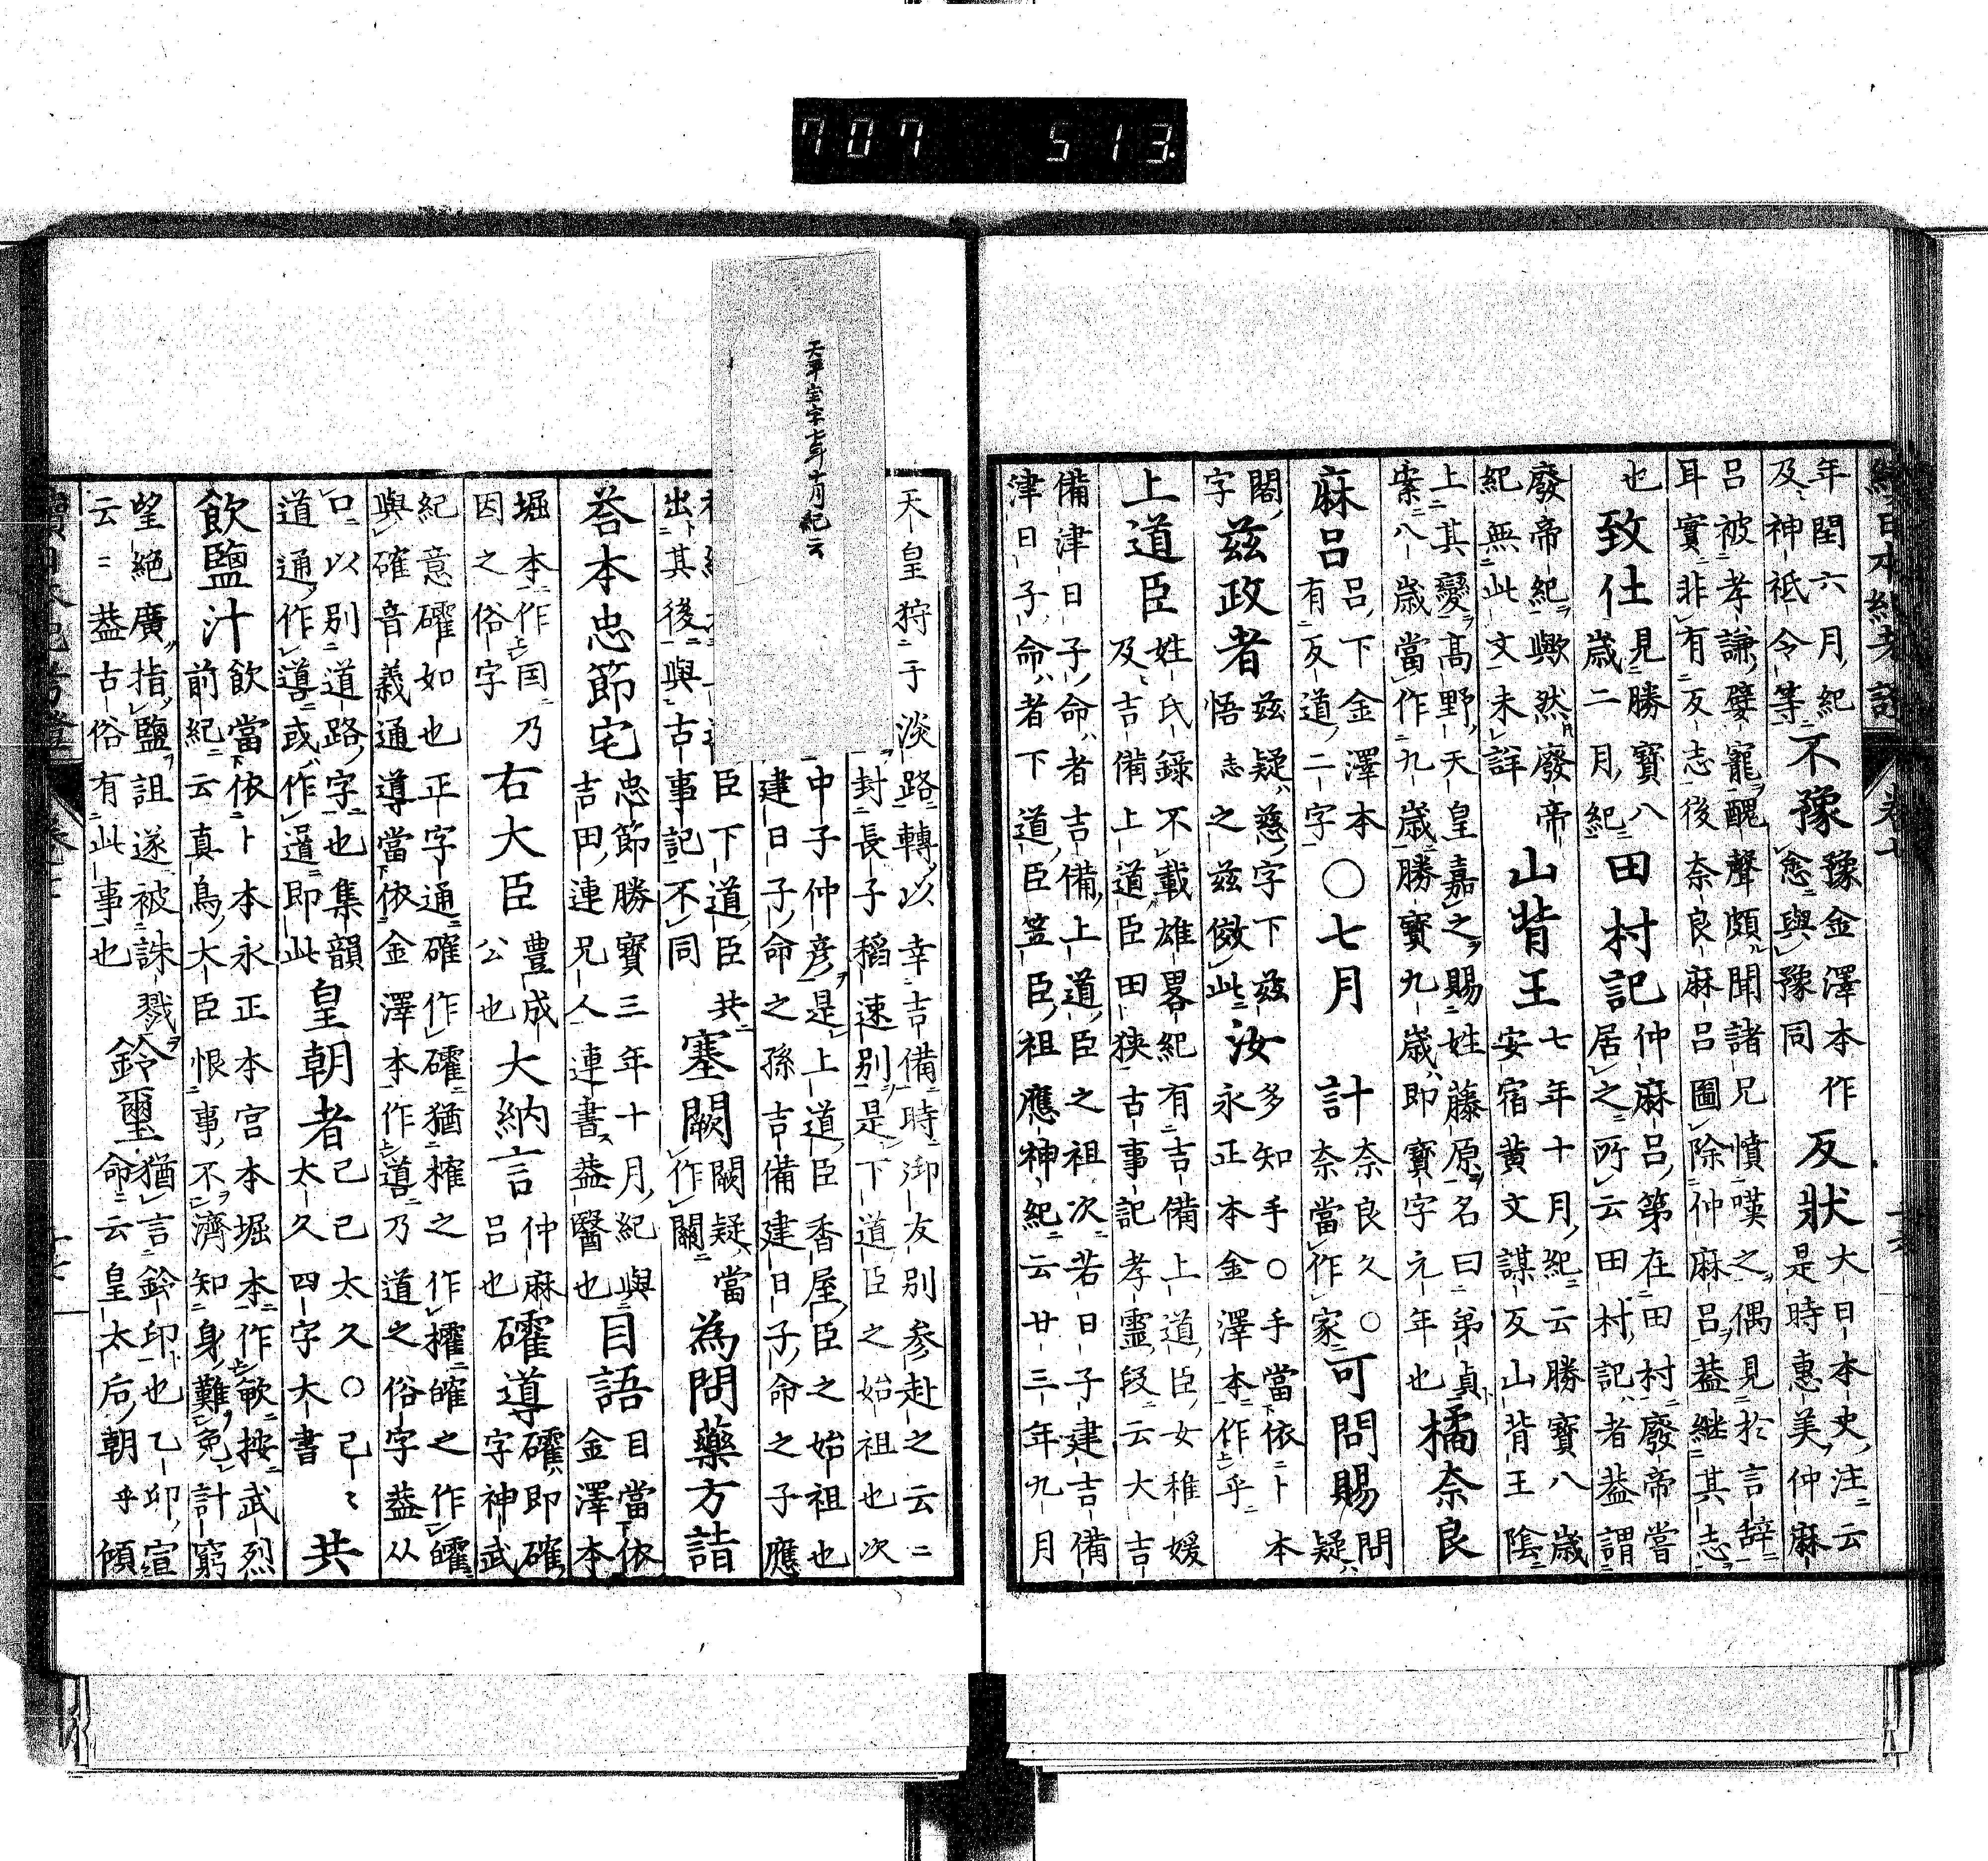 707 513.
續日本紀考證 卷七
年閏六月紀
及神祇令等
不豫
豫金澤本作
悆與豫同
反狀
大日本史注云
是時惠美仲麻
呂被孝謙嬖寵醜聲頗聞諸兄憤嘆之偶見於言辞
耳實非有反志後奈良麻呂圖除仲麻呂蓋継其志
也
致仕
見勝寶八
歳二月紀
田村記
仲麻呂第在田村廢帝當
居之所云田村記者蓋謂
廢帝紀歟然廢帝
紀無此文未詳
山背王
七年十月紀云勝寶八歳
安宿黄文謀反山背王陰
上其變髙野天皇嘉之賜姓藤原名曰弟貞
案八歳當作九歳勝寶九歳即寶字元年也
橘奈良
麻呂
呂下金澤本
有反道二字
○七月
計
奈良久○
奈當作家
可問賜
問
疑
閣
字
兹政者
兹疑慈字下兹
悟志之兹傚此
汝
多知手○手當依卜本
永正本金澤本作乎
上道臣
姓氏錄不載雄畧紀有吉備上道臣女稚媛
及吉備上道臣田狭古事記孝霊段云大吉
備津日子命者吉備上道臣之祖次若日子建吉備
津日子命者下道臣笠臣祖應神紀云廿三年九月
天皇狩于淡路轉以幸吉備時御友別参赴之云〻
封長子稻速別是下道臣之始祖也次
中子仲彦是上道臣香屋臣之始祖也
建日子命之孫吉備建日子命之子應
臣下道臣共
出其後與古事記不同
塞闕
闕疑當
作關
為問藥方詰
荅本忠節宅
忠節勝寶三年十月紀與
吉田連兄人連書蓋醫也
目語
目當依
金澤本
堀本作囯乃
因之俗字
右大臣
豊成
公也
大納言
仲麻
呂也
礭導
礭即確
字神武
紀意礭如也正字通確作礭猶榷之作㩁皠之作皬
與確音義通導當依金澤本作噵乃道之俗字蓋从
口以別道路字也集韻
道通作導或作噵即此
皇朝者
已已太久○已〻
太久四字大書
共
飲鹽汁
飲當依卜本永正本宮本堀本作㰸按武烈
前紀云真鳥大臣恨事不濟知身難免計窮
望絶廣指鹽詛遂被誅戮
云〻蓋古俗有此事也
鈴璽
猶言鈴印也乙卯宣
命云皇太后朝乎傾
續日本紀考證 卷七
天平宝字七年十月紀云